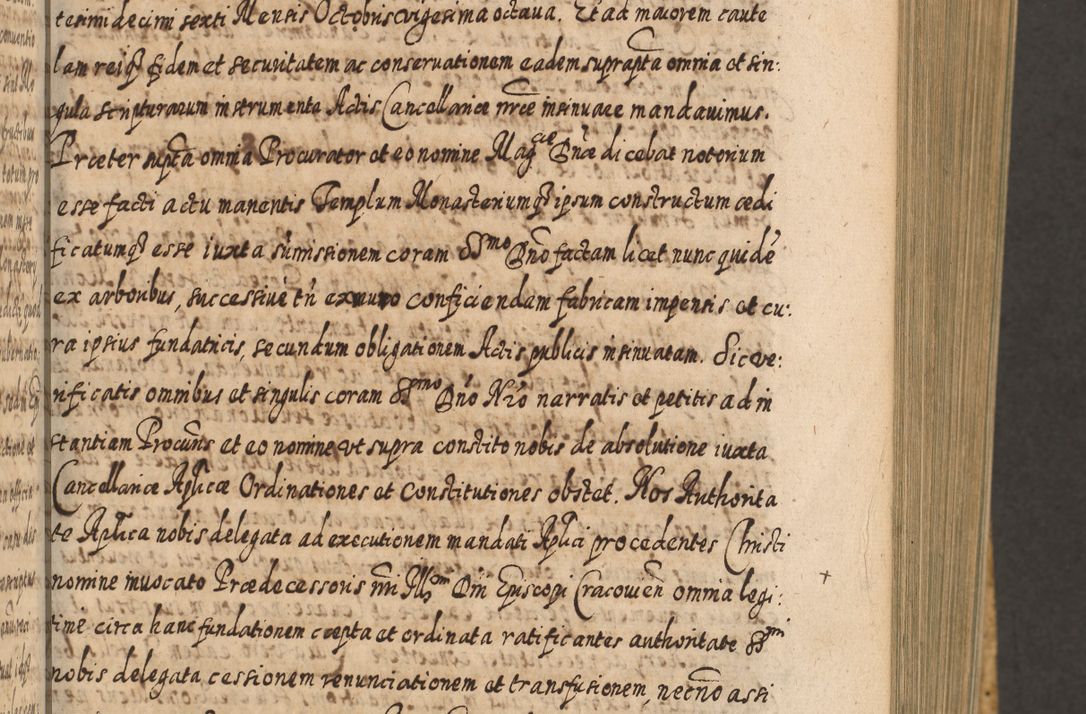 tesimi decimi sexti Mensis Octobris vigesima octaua. Et ad maiorem caute
lam reiq3 fidem et securitatem ac conservationem eadem suprapta omnia et sin:
gula scripturarum instrumenta Actis Cancellariæ nrœ insinuare mandauimus.
Præter supta omnia Procurator et eo nomine Magcæ Dnæ dicebat notorium
esse facti actu manentis Templum Monasteriumq3 ipsum constructum ædi
ficatumq3 esse iuxta sumissionem coram SSmo Dno factam licet nunc quidẽ
ex arboribus, successiue tñ ex muro conficiendam fabricam impensis et cu:
ra ipsius fundatricis, secundum obligationem Actis publicis insinuatam. Sic ve:
rificatis omnibus et singulis coram SSmo Dnõ Nrõ narratis et petitis ad in
stantiam Procuris et eo nomine vt supra constito nobis de absolutione iuxta
Cancellariæ Aplicæ Ordinationes et Constitutiones obstet. Nos Authorita
te Aplica nobis delegata ad executionem mandati Aplici procedentes Christi
nomine inuocato Prædecessoris nri Illmi Dni Episcopi Cracouieñ omnia legi:
time circa hanc fundationem cœpta et ordinata ratificantes authoritate SSmi
nobis delegata cessionem renunciationem et transfusionem, necnõ assi